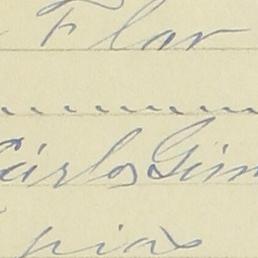 Flor
Carlos Gim
pias